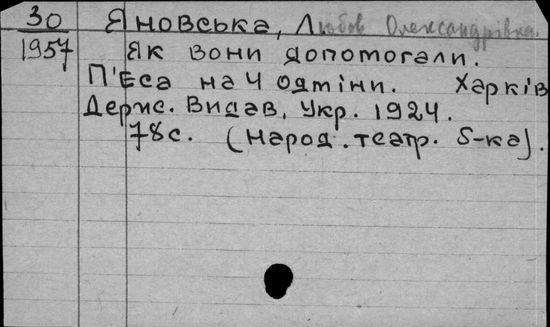 30
1957
Яновська, Любов Олександрівна.
Як вони допомогали.
П'Еса на 4 одміни. Харків
Держ. Видав. Укр. 1924.
78с. (народ. театр. б-ка).